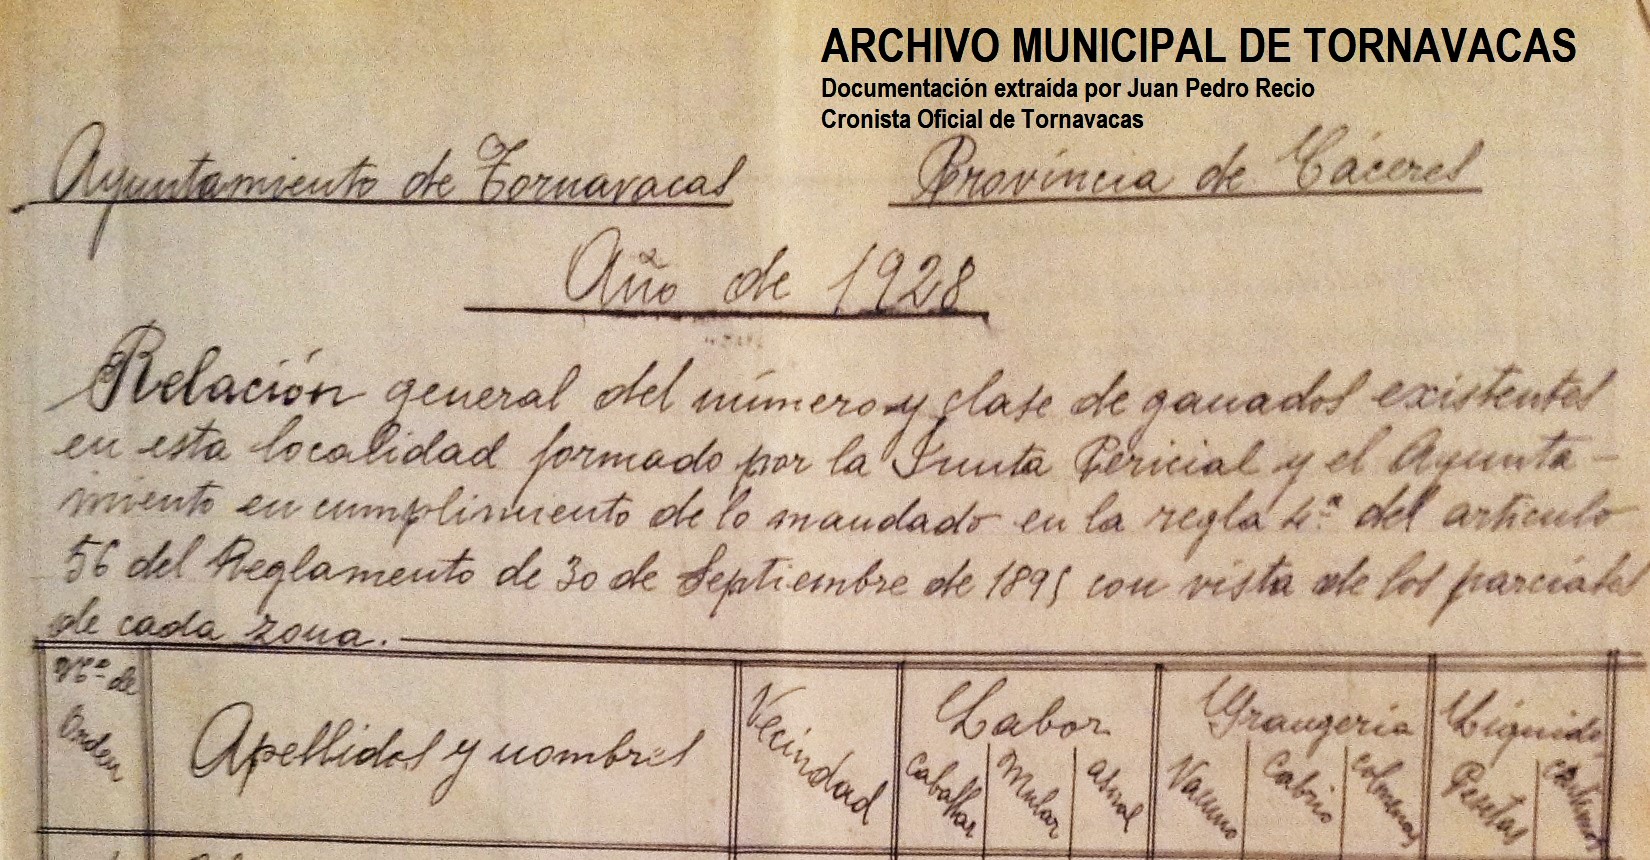 ARCHIVO MUNICIPAL DE TORNAVACAS
Documentación extraída por Juan Pedro Recio
Cronista Oficial de Tornavacas
Ayuntamiento de Tornavacas
Provincia de Cáceres
Año de 1928
Relación general del número y clase de ganados existentes
en esta localidad formado por la Junta Pericial y el Ayunta-
miento en cumplimiento de lo mandado en la regla 4ª del artículo
56 del Reglamento de 30 de Septiembre de 1895 con vista de los parciales
de cada zona.
Nº de Orden
Apellidos y nombres
Vecindad
Labor
caballar
Mular
asnal
Grangeria
Vacuno
Cabrio
colmenas
Líquido
Pesetas
centimos